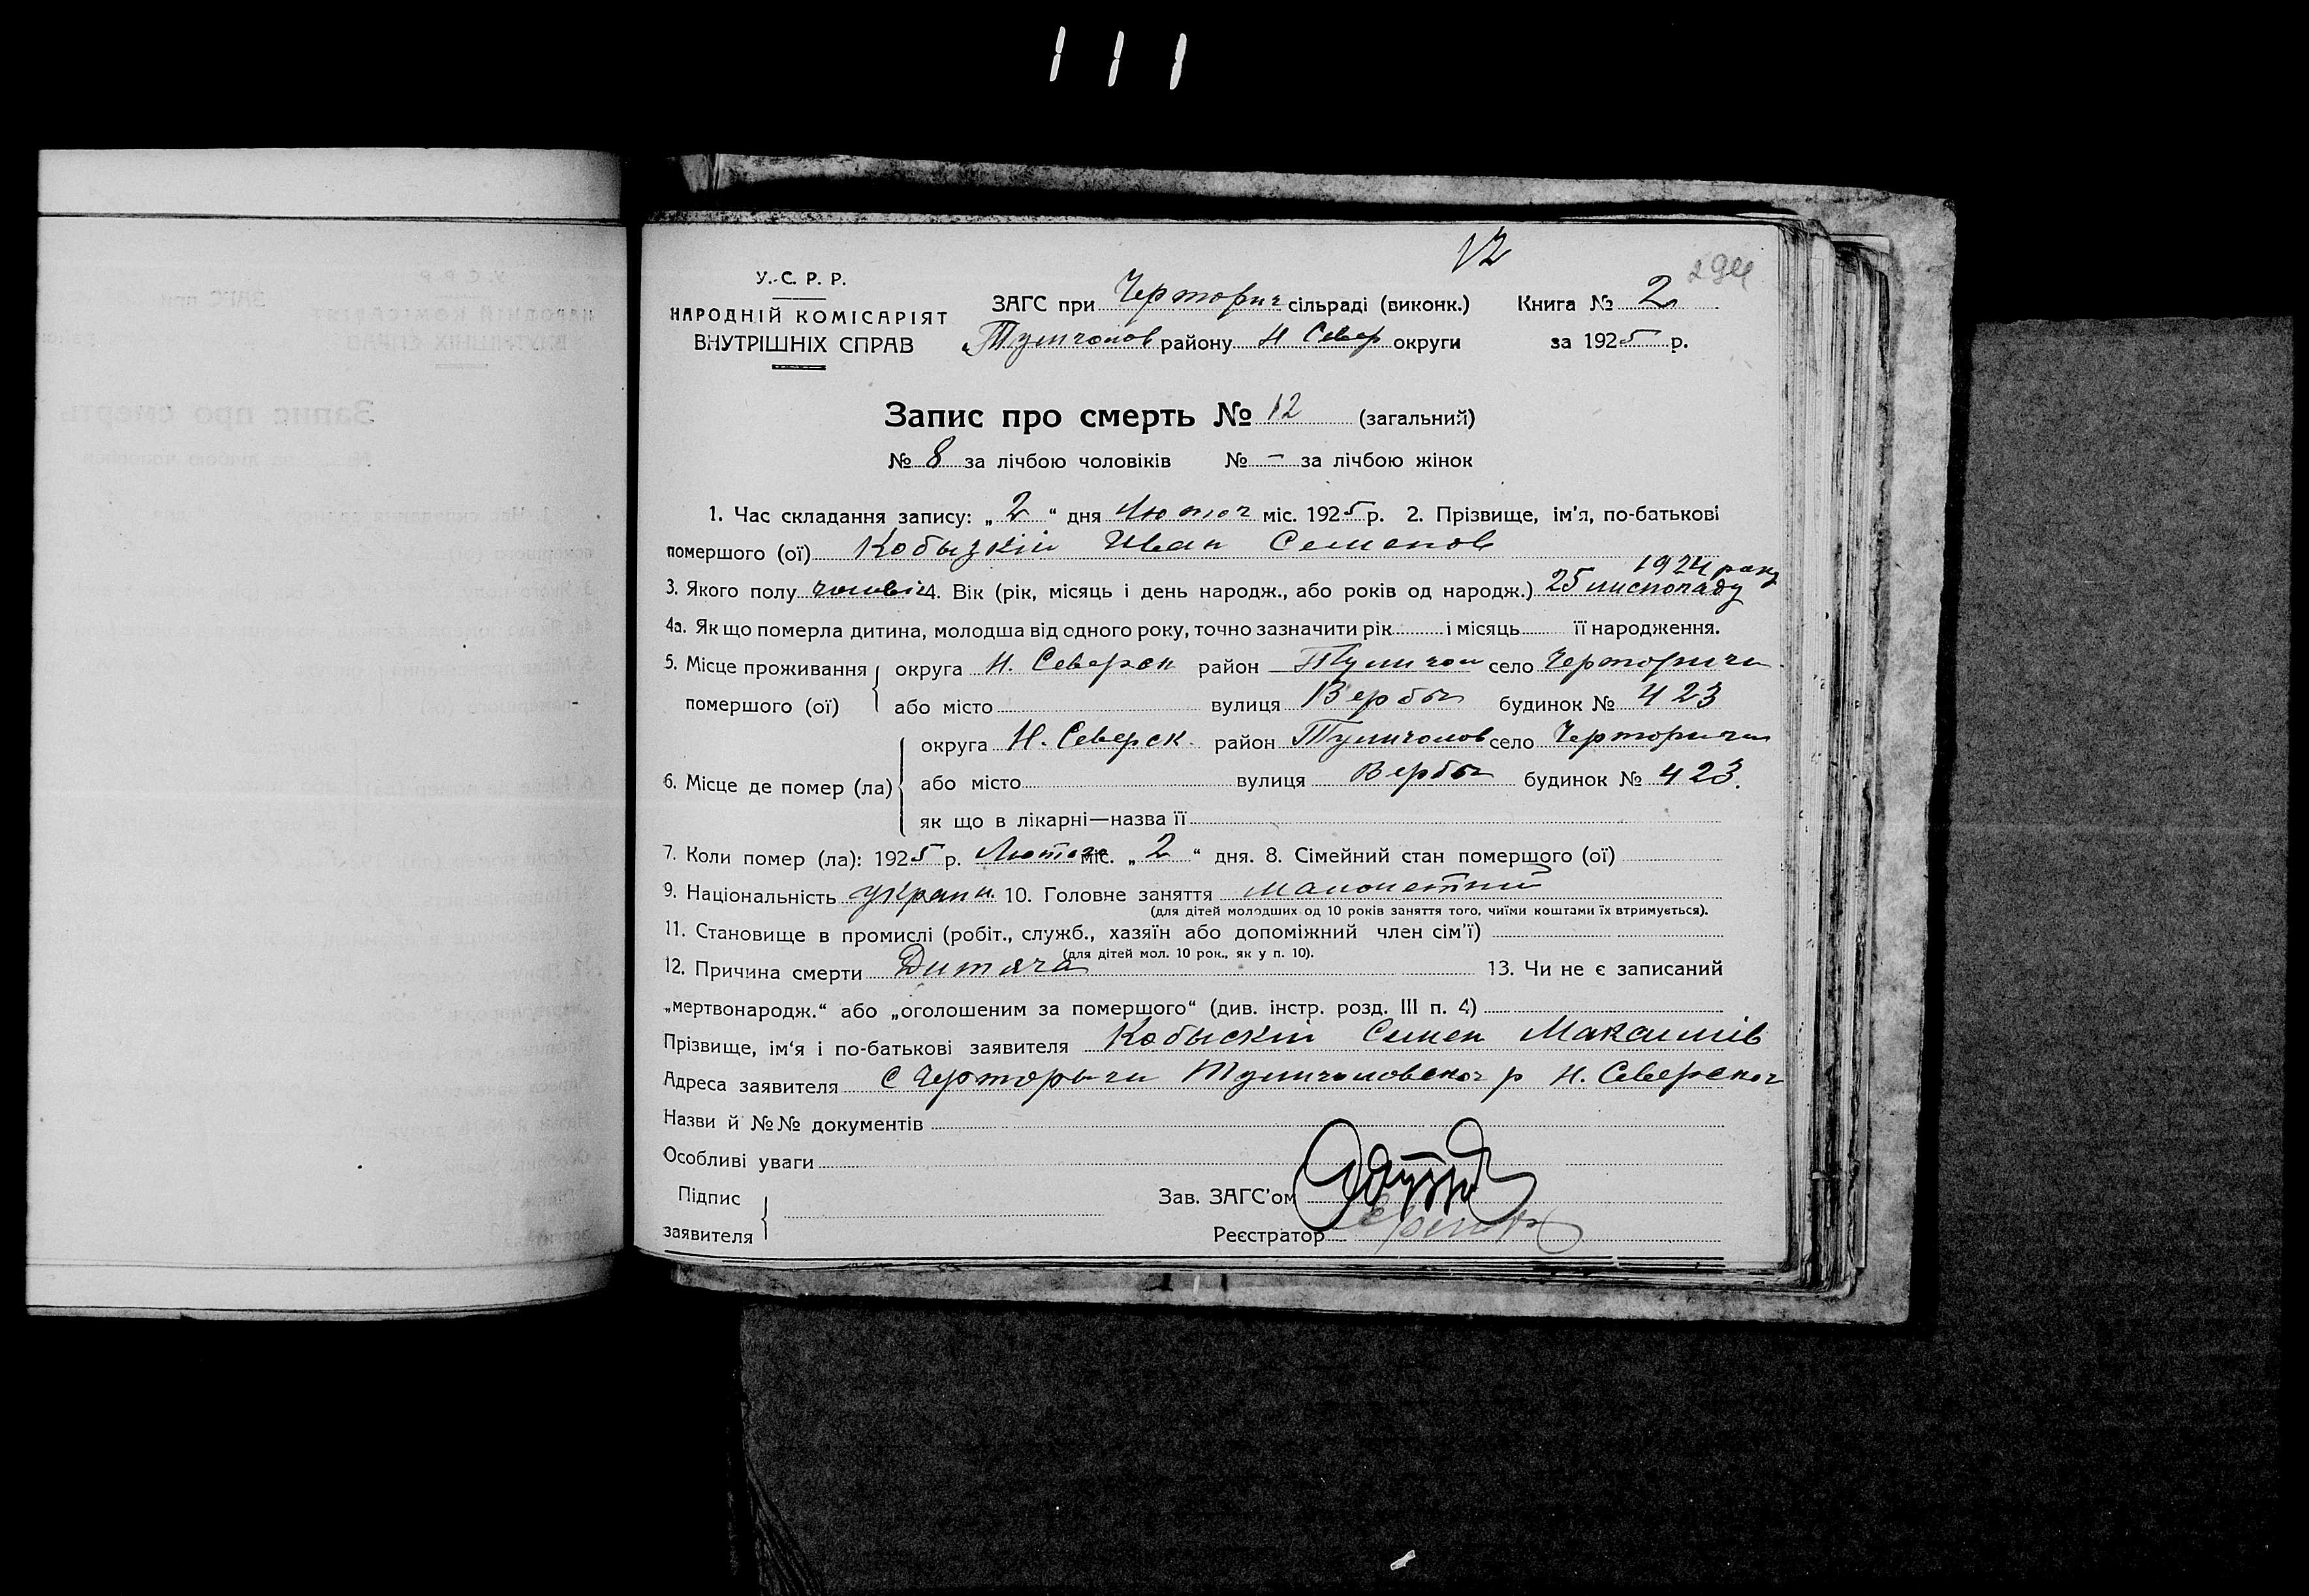 12
294
У.-С. Р. Р.
НАРОДНІЙ КОМІСАРІЯТ
ВНУТРІШНІХ СПРАВ
ЗАГС при Черториг сільраді (виконк.) Книга № 2
Тулиголов району Н Север округи за 1925 р.
Запис про смерть № 12 (загальний)
№ 8 за лічбою чоловіків № – за лічбою жінок
1. Час складання запису: „ 2 “ дня Лютог міс. 1925 р. 2. Прізвище, ім'я, по-батькові
помершого (ої) Кобызкій Иван Семенов
1924 року
3. Якого полу чоловіч 4. Вік (рік, місяць і день народж., або років од народж.) 25 листопаду
4а. Як що померла дитина, молодша від одного року, точно зазначити рік і місяць її народження.
5. Місце проживання помершого (ої) округа Н. Северск район Тулигол село Черториги
або місто вулиця Вербы будинок № 423
6. Місце де помер (ла) округа Н. Северск. район Тулиголов село Черториги
або місто вулиця Вербы будинок № 423.
як що в лікарні—назва її
7. Коли помер (ла): 1925 р. Лютого міс. „ 2 “ дня. 8. Сімейний стан помершого (ої)
9. Національність україн. 10. Головне заняття малолетний
(для дітей молодших од 10 років заняття того, чиїми коштами їх втримується).
11. Становище в промислі (робіт., служб., хазяїн або допоміжний член сім'ї)
(для дітей мол. 10 рок., як у п. 10).
12. Причина смерти Дитяча 13. Чи не є записаний
„мертвонародж.“ або „оголошеним за помершого“ (див. інстр. розд. III п. 4)
Прізвище, ім'я і по-батькові заявителя Кобыскій Семен Максимів
Адреса заявителя с Черторыги Тулиголовског р Н. Северског
Назви й №№ документів
Особливі уваги
Підпис заявителя
Зав. ЗАГС'ом
Реєстратор